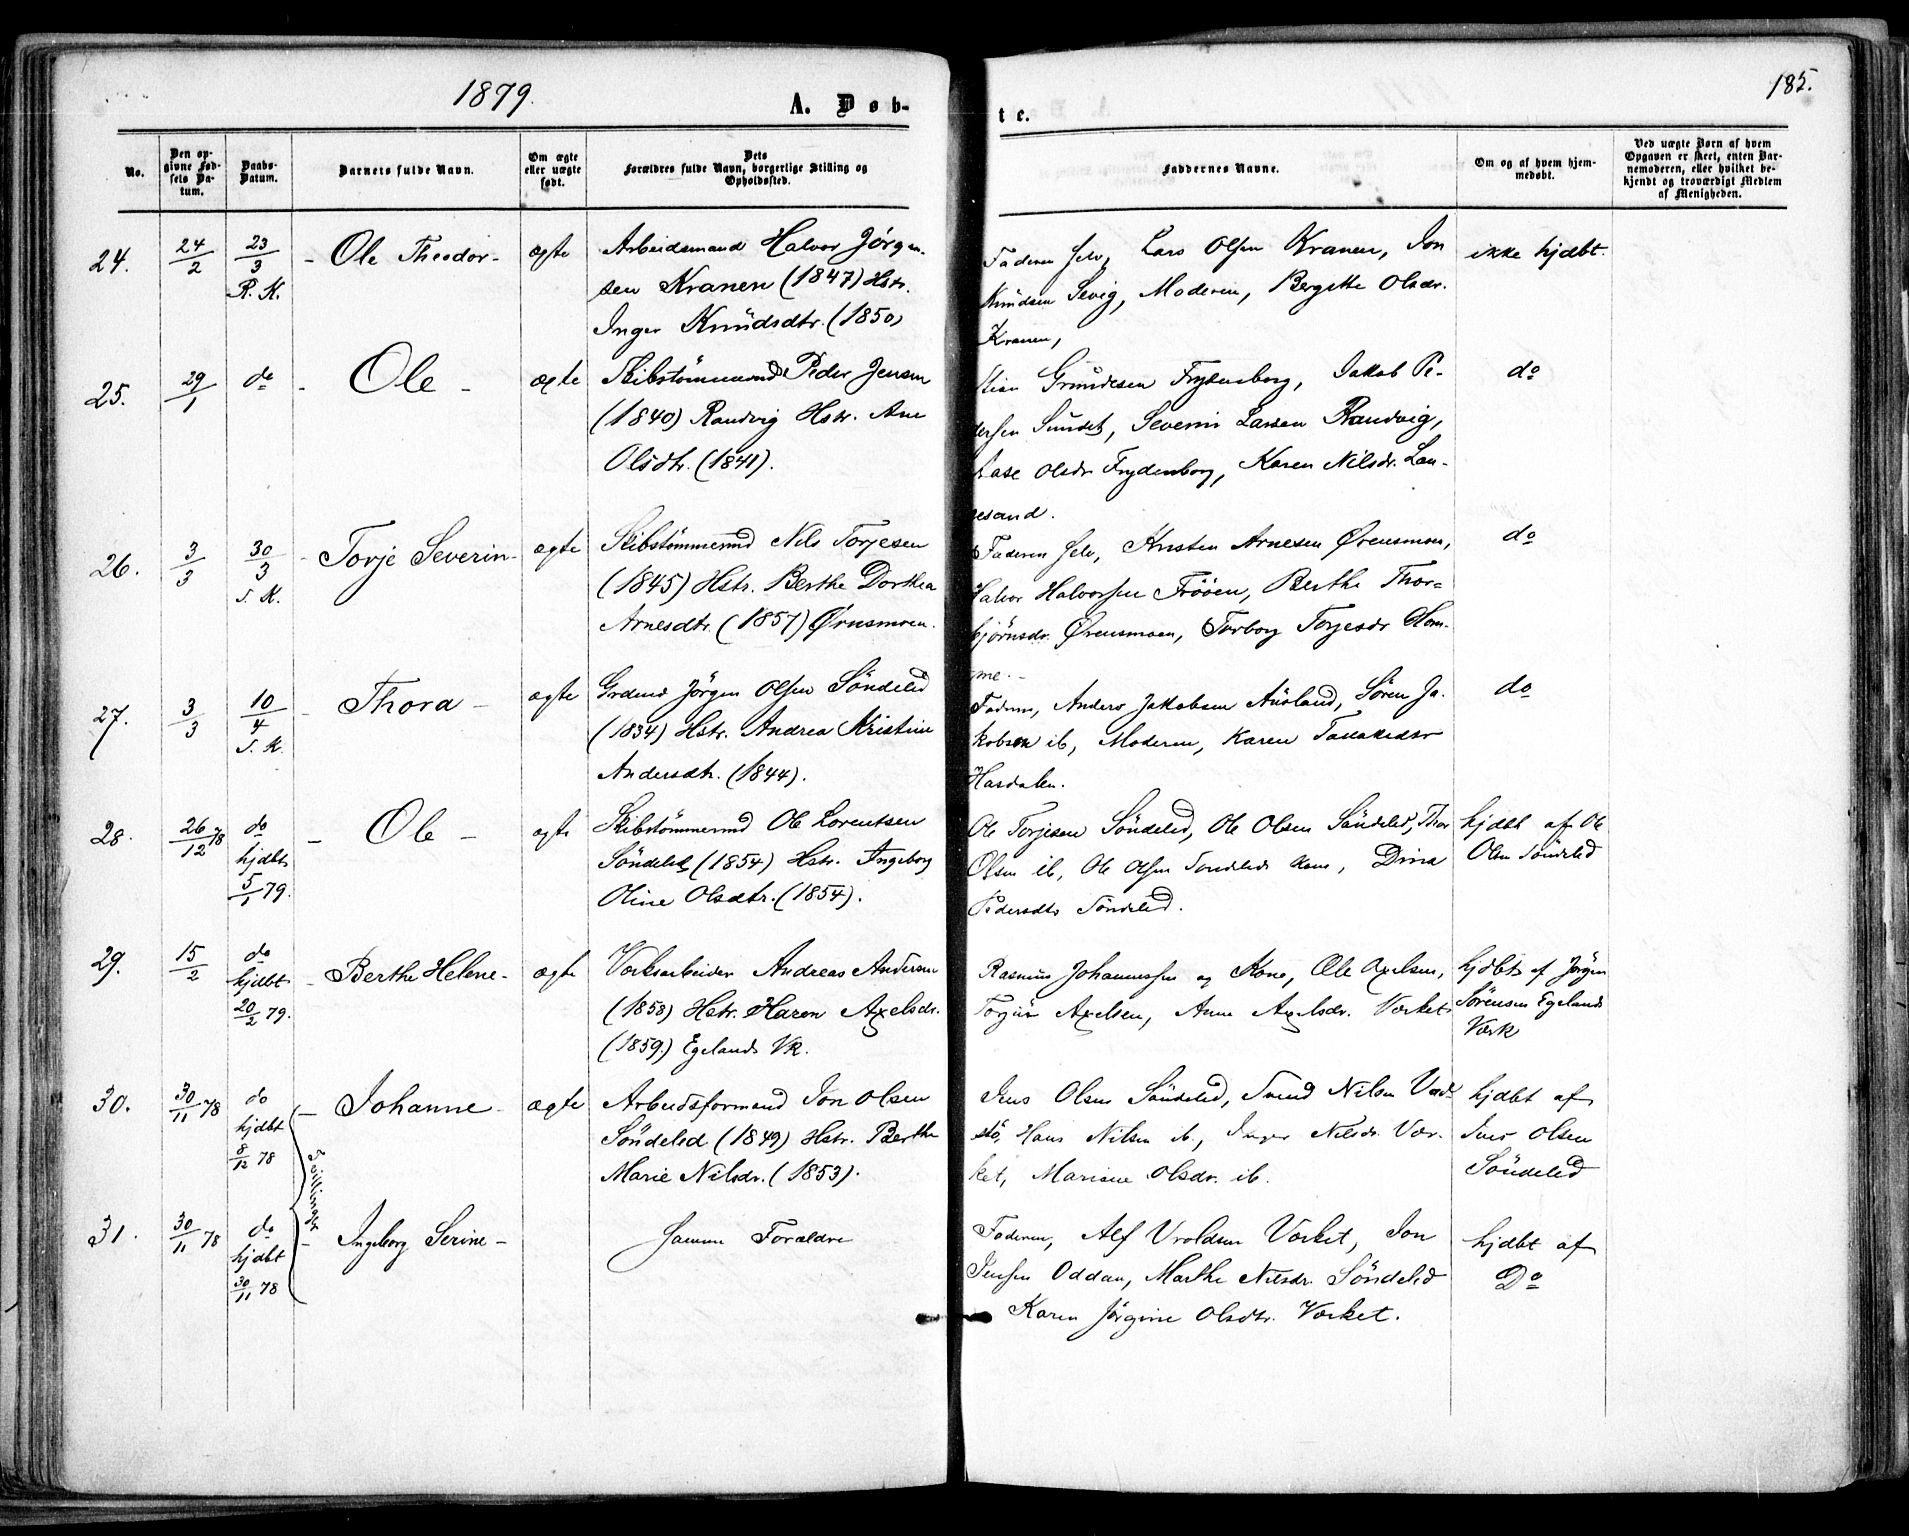 1879.
A. Døb-
te.
185.
No.
Den op-
givne Fød-
sels Da-
tum.
Daabs-
Datum.
Barnets fulde Navn.
Om ægte
eller uægte
født.
Dets
Forældres fulde Navn, borgerlige Stilling og
Opholdssted.
Faddernes Navne.
Om og af hvem hjem-
medøbt.
Ved uægte Børn af hvem
Opgaven er skeet, enten Bar-
nemoderen, eller hvilket be-
kjendt og troværdigt Medlem
af Menigheden.
24.
24/2
23/3
R. K.
- Ole Theodor -
ægte
Arbeidsmand Halvor Jørgen-
sen Kranen (1847) Hstr.
Inger Knudsdtr. (1850)
Faderen selv, Lars Olsen Kranen, Jon
Knudsen Sevig, Moderen, Bergitte Olsdr.
Kranen,
ikke hjdbt.
25.
29/1
do
- Ole -
ægte
Skibstømmermd Peder Jensen
(1840) Randvig Hstr. Ane
Olsdtr. (1841).
Grundesen Frydenborg, Jakob Pe-
dersen Sundet, Severin Larsen Randvig,
Aase Olsdr Frydenborg, Karen Nilsdr. Lan-
gesand.
do
26.
3/3
30/3
S. K.
- Torje Severin -
ægte
Skibstømmermd Nils Torjesen
(1845) Hstr. Berthe Dorthea
Arnesdtr. (1857) Ørnsmoen.
Faderen selv, Kristen Arnesen Ørensmoen,
Halvor Halvorsen Frøoen, Berthe Thor-
bjørnsdr. Ørensmoen, Torborg Torjesdr Hom-
me. -
do
27.
3/3
10/4
S. K.
- Thora -
ægte
Grdmd Jörgen Olsen Söndeled
(1834) Hstr. Andrea Kristine
Andersdtr. (1844).
Faderen, Anders Jakobsen Auland, Sören Ja-
kobsen ib, Moderen, Karen
Hasdalen.
do
28.
26/12 78
do
hjdbt
5/1 79.
- Ole -
ægte
Skibstömmermd Ole Lorentsen
Söndeled (1854) Hstr. Ingeborg
Oline Olsdtr. (1854).
Ole Torjesen Söndeled, Ole Olsen Söndeled, Thor
Olsen ib, Ole Olsen Sondeleds Kone, Dina
Pedersdtr Söndeled.
hjdbt af Ole
Olsen Söndeled
29.
15/2
do
hjdbt
20/2 79.
- Berthe Helene -
ægte
Verksarbeider Andreas Andersen
(1858) Hstr. Karen Axelsdr.
(1859.) Egelands Vk.
Rasmus Johannessen og Kone, Ole Axelsen,
Torjus Axelsen, Anne Axelsdr. Værket
hjdbt af Jörgen
Sörensen Egelands
Værk
30.
30/11 78
do
hjdbt
8/12 78
Tvillinger
- Johanne -
ægte
Arbeidsformand Jon Olsen
Söndeled (1849) Hstr. Berthe
Marie Nilsdr. (1853).
Jens Olsen Söndeled, Svend Nilsen Vad-
stö, Hans Nilsen ib., Inger Nilsdr. Vær-
ket, Mariane Olsdr. ib.
hjdbt af
Jens Olsen
Söndeled
31.
30/11 78
do
hjdbt
30/11 78
- Ingeborg Serine -
Samme Forældre
Faderen, Alf Vroldsen Værket, Jon
Jensen Oddan, Marthe Nilsdr. Söndeled
Karen Jörgine Olsdtr. Værket.
hjdbt af
Do